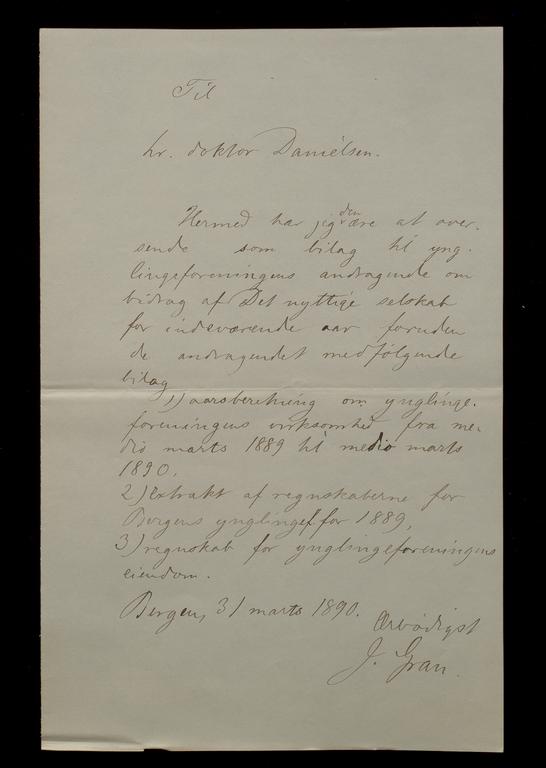 Til
hr. doktor Daniélsen.
Hermed har jeg den ære at over-
sende som bilag til yng-
lingeforeningens andragende om
bidrag af Det nyttige selskab
for indeværende aar foruden
de andragendet medfølgende
bilag
1) aarsberetning om ynglinge-
foreningens virksomhed fra me-
dio marts 1889 til medio marts
1890.
2) extrakt af regnskaberne for
Bergens ynglingef for 1889,
3) regnskab for ynglingeforeningens
eiendom.
Bergen, 31 marts 1890.
Ærbødigst
J. Gran.